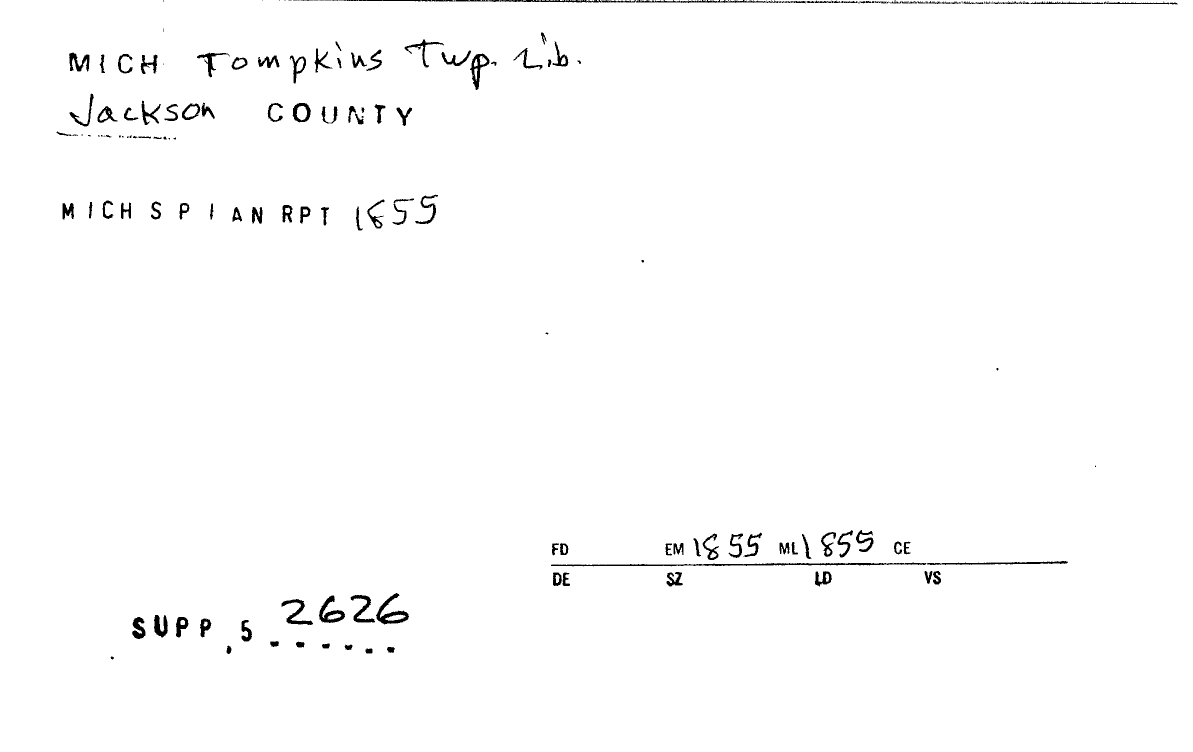 MICH Tompkins Twp. Lib.
Jackson COUNTY
MICH S P I AN RPT 1855
FD EM 1855 ML 1855 CE
DE SZ LD VS
SUPP, 5 2626